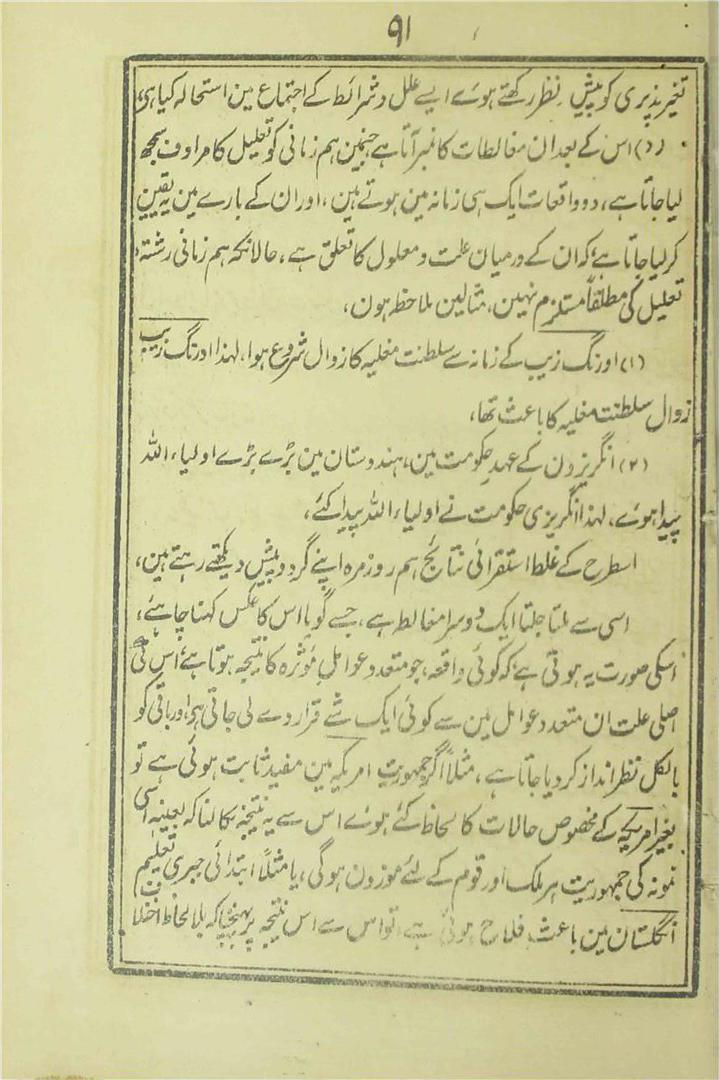 ۹۱
تغیر پذیری کو پیش نظر رکھتے ہوئے ایسے علل و شرائط کے اجتماع مین استحالہ کیا ہی،
(د) اس کے بعد ان مغالطات کا نمبر آتا ہے جنمین ہم زمانی کو تعلیل کا مرادف سمجھ
لیا جاتا ہے، دو واقعات ایک ہی زمانہ مین ہوتے ہین، اور ان کے بارے مین یہ یقین
کر لیا جاتا ہے، کہ ان کے درمیان علت و معلول کا تعلق ہے، حالانکہ ہم زمانی رشتۂ
تعلیل کی مطلقاً مستلزم نہین، مثالین ملاحظہ ہون،
(۱) اورنگ زیب کے زمانہ سے سلطنت مغلیہ کا زوال شروع ہوا، لہذا اورنگ زیب
زوال سلطنت مغلیہ کا باعث تھا،
(۲) انگریزون کے عہد حکومت مین، ہندوستان مین بڑے بڑے اولیاء اللہ
پیدا ہوئے، لہذا انگریزی حکومت نے اولیاء اللہ پیدا کئے،
اسطرح کے غلط استقرائی نتائج ہم روزمرہ اپنے گرد و پیش دیکھتے رہتے ہین،
اسی سے ملتا جلتا ایک دوسرا مغالطہ ہے، جسے گویا اس کا عکس کہنا چاہئے،
اسکی صورت یہ ہوتی ہے، کہ کوئی واقعہ، جو متعدد عوامل مؤثرہ کا نتیجہ ہوتا ہے، اس کی
اصلی علت ان متعدد عوامل مین سے کوئی ایک شے قرار دے لی جاتی ہی، اور باقی کو
بالکل نظر انداز کر دیا جاتا ہے، مثلاً اگر جمہوریت امریکہ مین مفید ثابت ہوئی ہے تو
بغیر امریکہ کے مخصوص حالات کا لحاظ کئے ہوئے اس سے یہ نتیجہ نکالنا کہ بعینہ اسی
نمونہ کی جمہوریت ہر ملک اور قوم کے لئے موزون ہو گی، یا مثلاً ابتدائی جبری تعلیم
انگلستان مین باعث فلاح ہوئی ہے، تو اس سے اس نتیجہ پر پہنچنا کہ بلا لحاظ اختلاف